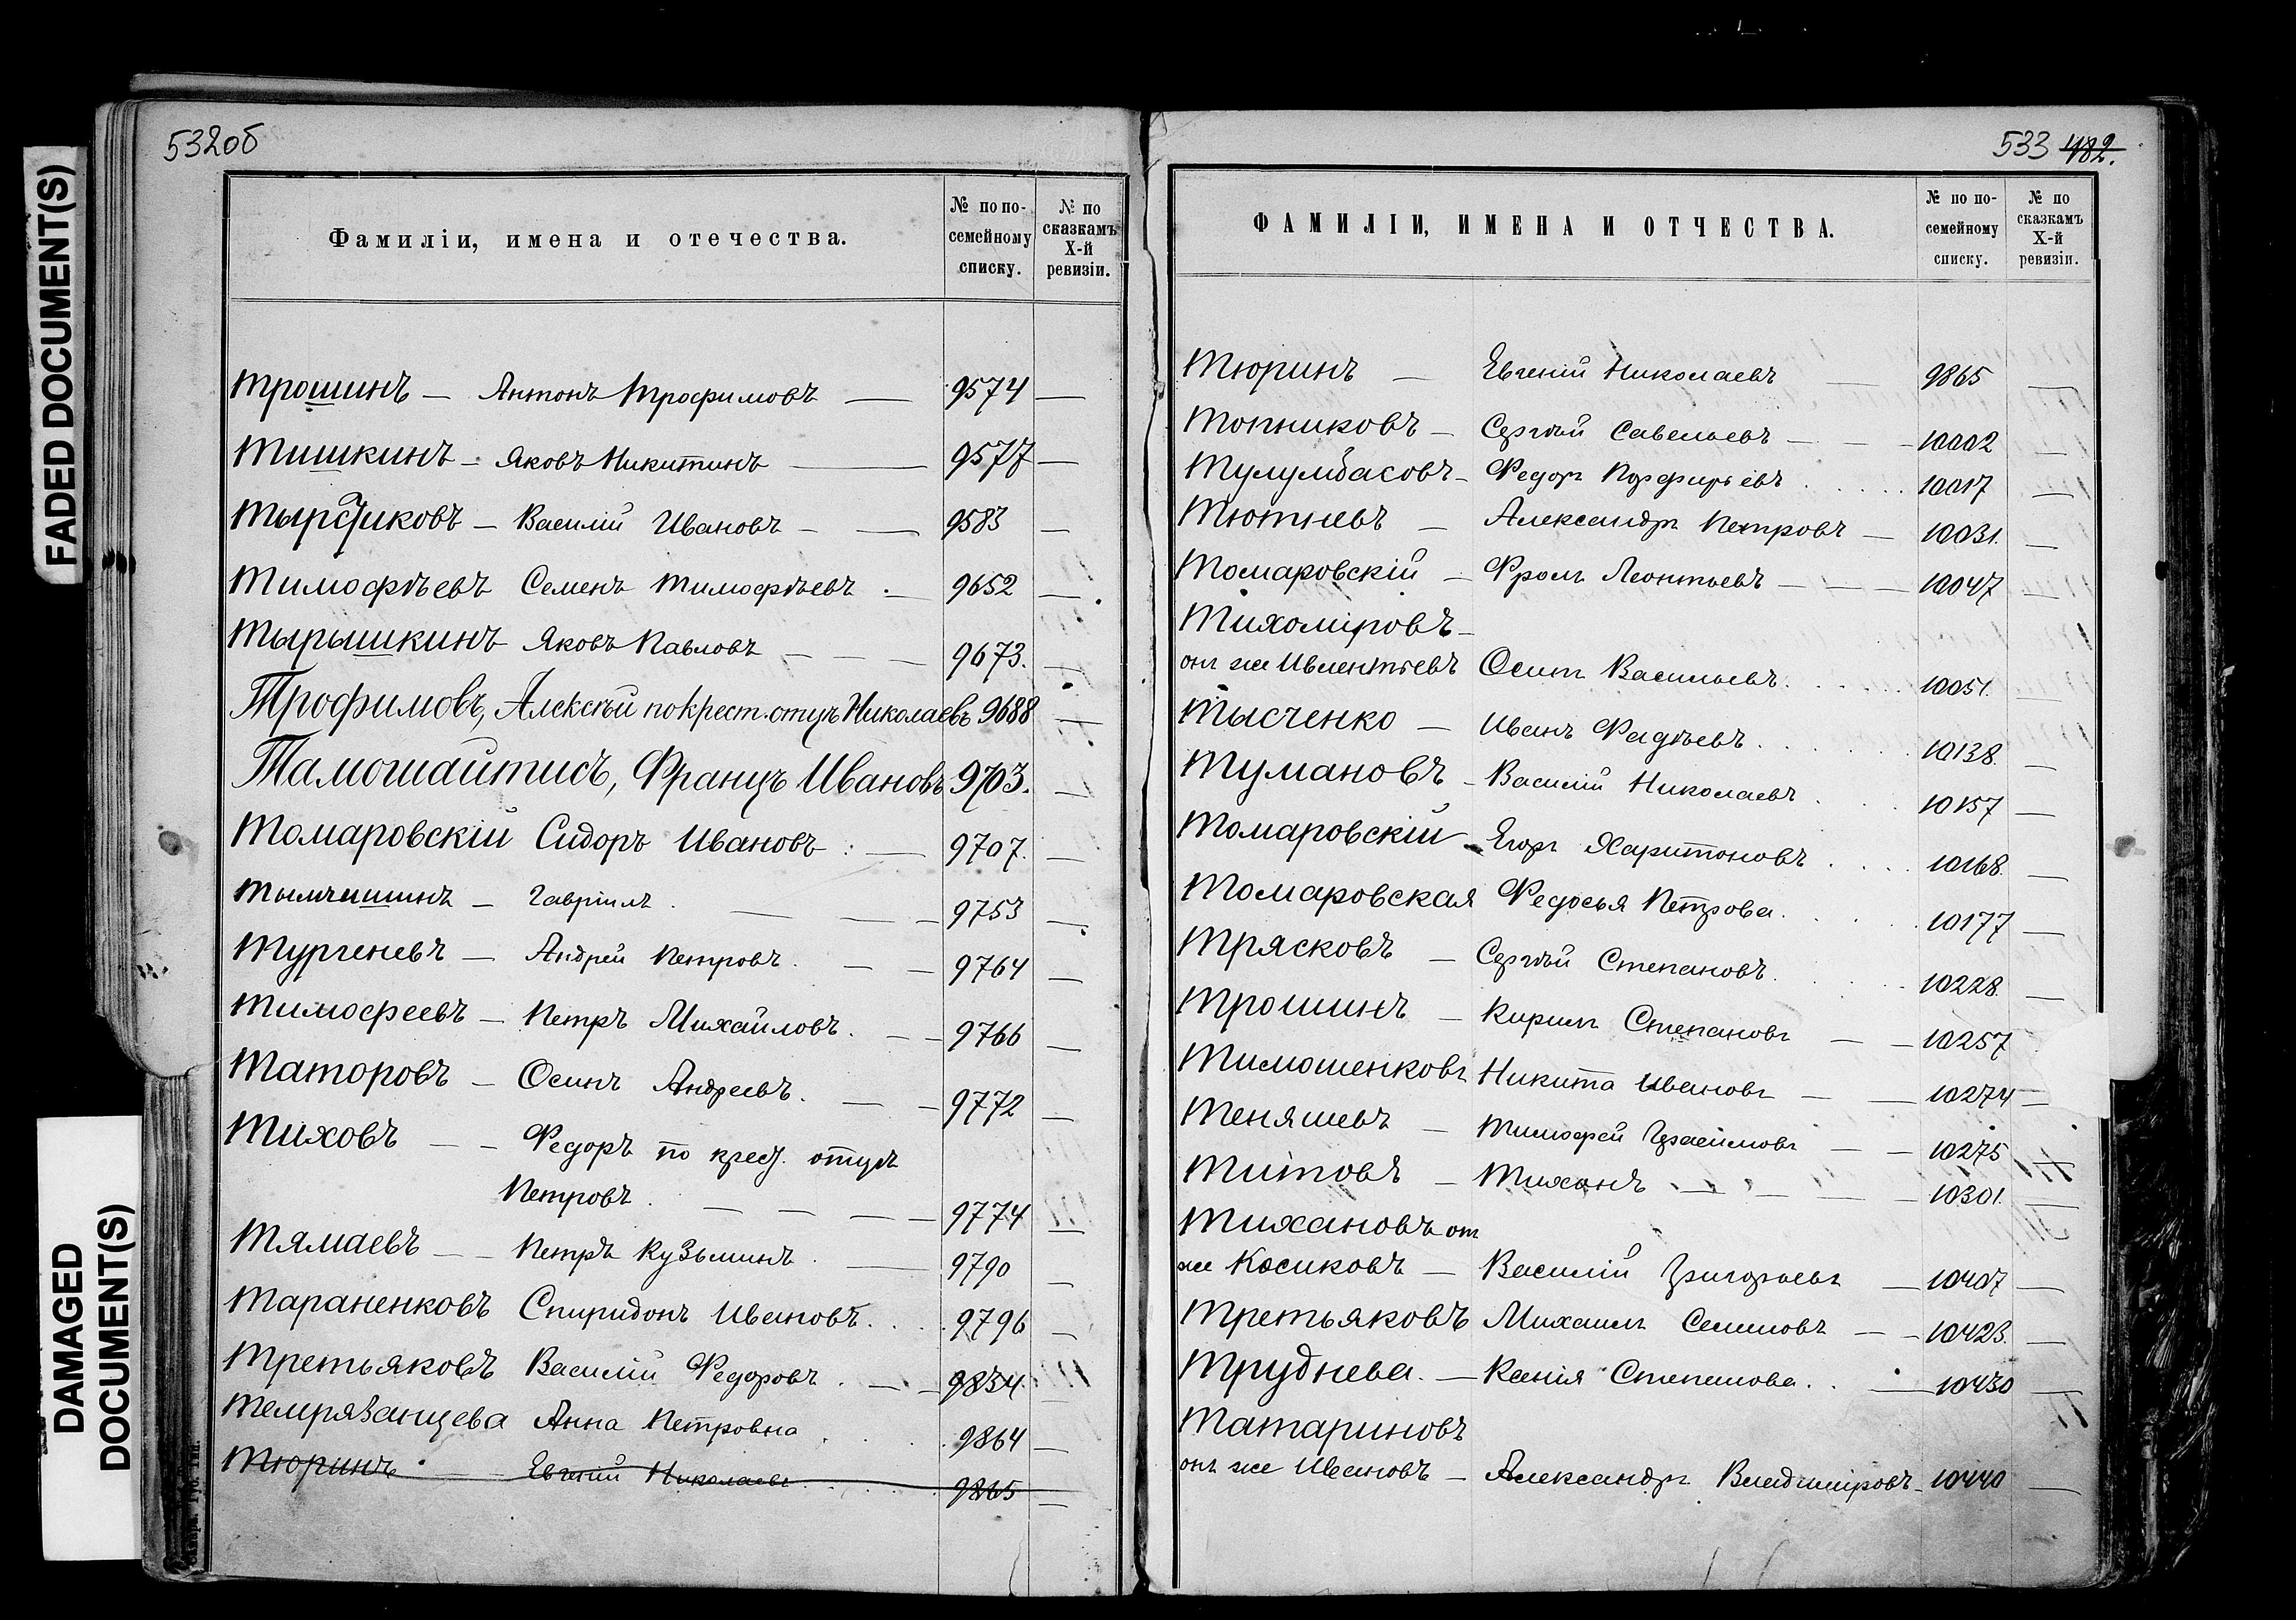 FADED DOCUMENT(S)
DAMAGED
DOCUMENT(S)
532об
Фамиліи, имена и отечества.
№ по по-
семейному
списку.
№ по
сказкамъ
X-й
ревизіи.
Трошинъ — Антонъ Трофимовъ — 9574 —
Тишкинъ — Яковъ Никитинъ — 9577 —
Василій Ивановъ — — 9583 —
Тимофѣевъ Семенъ Тимофѣевъ . — 9652 —
Тырышкинъ Яковъ Павловъ — — — 9673. —
Трофимовъ, Алексѣй по крест. отцу Николаевъ 9688 —
Тамошайтисъ, Францъ Ивановъ 9703. —
Томаровскій Сидоръ Ивановъ : — 9707. —
Тымчишинъ — Гавріилъ . — — — 9753 —
Тургеневъ — Андрей Петровъ . — — 9764 —
Тимофеевъ — Петръ Михайловъ . — — 9766 —
Таторовъ — Осипъ Андреевъ . — — 9772 —
Тиховъ — — Федоръ по крест. отцу
Петровъ . — — — — 9774 —
Тямаевъ — — Петръ Кузьминъ . — 9790 —
Тараненковъ Спиридонъ Ивановъ . . . 9796 —
Третьяковъ Василій Федоровъ . — — 9834. —
Темрязанцева Анна Петровна . . . 9864 —
Тюринъ — Евгеній Николаевъ . . . 9865 —
533 482.
ФАМИЛІИ, ИМЕНА И ОТЧЕСТВА.
№ по по-
семейному
списку.
№ по
сказкамъ
X-й
ревизіи.
Тюринъ — Евгеній Николаевъ — 9865 —
Топниковъ — Сергѣй Савельевъ — — — 10002 —
Тулумбасовъ — Федоръ Порфирьевъ . . . . 10017 —
Тютневъ — Александръ Петровъ — 10031. —
Томаровскій — Фролъ Леонтьевъ — — — 10047 —
Тихоміровъ —
онъ же Ивлентіевъ Осипъ Васильевъ . . . . 10051. —
Тысченко — Иванъ Фадѣевъ . . . . 10138. —
Тумановъ — Василій Николаевъ . . . 10157 —
Томаровскій — Егоръ Харитоновъ . . . 10168. —
Томаровская Федосья Петрова . . . . 10177 —
Трясковъ — Сергѣй Степановъ . . . . 10228. —
Трошинъ — Кирилъ Степановъ — — 10257
Тимошенковъ Никита Ивановъ — — 10274 —
Теняшевъ — Тимофей — — 10275 —
Титовъ — Тихонъ . — — — — 10301. —
Тихановъ он
же Косиковъ — Василій Григорьевъ — 10407 —
Третьяковъ Михаилъ Семеновъ — — 10423. —
Труднева . — Ксенія Степанова . . — 10430 —
Татариновъ
онъ же Ивановъ — Александръ Владиміровъ — 10440 —